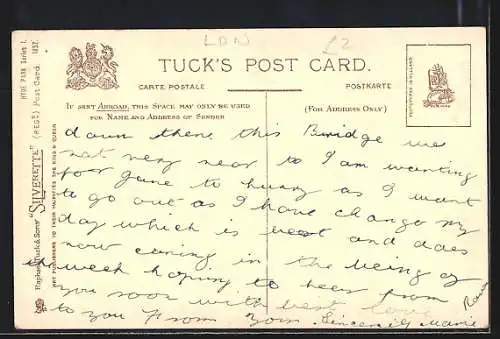 LDN
£2
TUCK'S POST CARD.
CARTE POSTALE
POSTKARTE
IF SENT ABROAD, THIS SPACE MAY ONLY BE USED
FOR NAME AND ADDRESS OF SENDER
(FOR ADDRESS ONLY)
HYDE PARK Series I.
1857.
Raphael Tuck & Sons' "SILVERETTE" (REGD) Post Card.
ART PUBLISHERS TO THEIR MAJESTIES THE KING & QUEEN
down there this Bridge
not very near to I am wanting
for Jane to hurry as I want
to go out as I have change my
day which is and does
now coming in the being of
the week hoping to hear from
you soon with best love
to you From Your Sincerely Marie